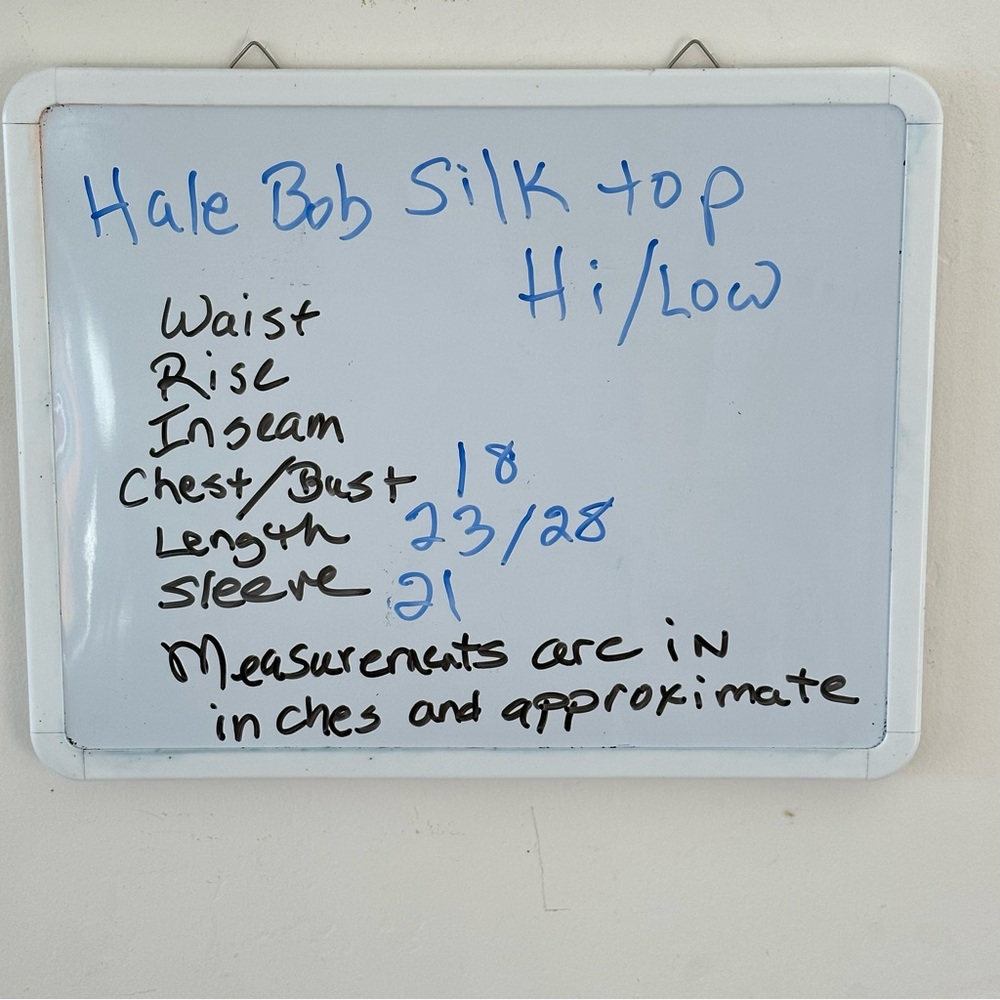 Hale Bob Silk top
Hi/Low
Waist
Rise
Inseam
Chest/Bust 18
Length 23/28
Sleeve 21
Measurements are in
inches and approximate